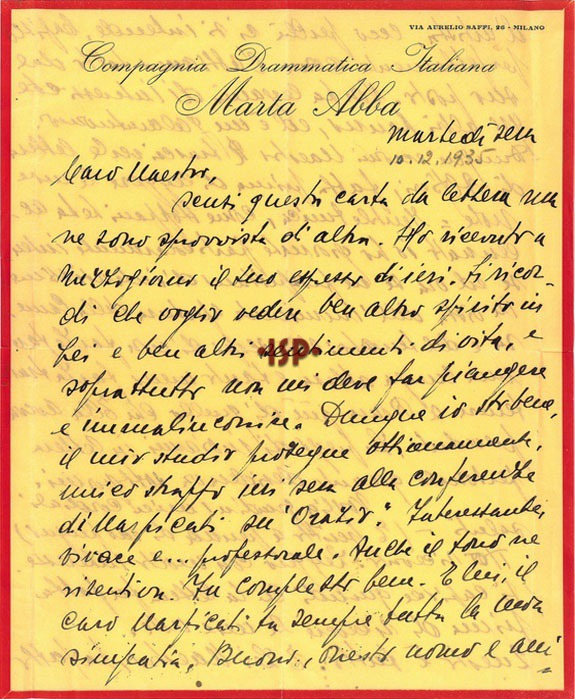 VIA AURELIO SAFFI, 26 - MILANO
Compagnia Drammatica Italiana
Marta Abba
martedì sera
10.12.1935
Caro Maestro,
scusi questa carta da lettera ma
ne sono sprovvista di altra. Ho ricevuto a
mezzogiorno il suo espresso di ieri. Si ricor-
di che voglio vedere ben altro spirito in
Lei e ben altri sentimenti di vita, e
ISP
soprattutto non mi deve far piangere
e immalinconire. Dunque io sto bene,
il mio studio prosegue ottimamente,
unico strappo ieri sera alla conferenza
di Marpicati su "Orazio". Interessante,
vivace e... professorale. Anche il tono ne
risentiva. In complesso bene. E lui, il
caro Marpicati ha sempre tutta la mia
simpatia, Buono, onesto uomo e ami=